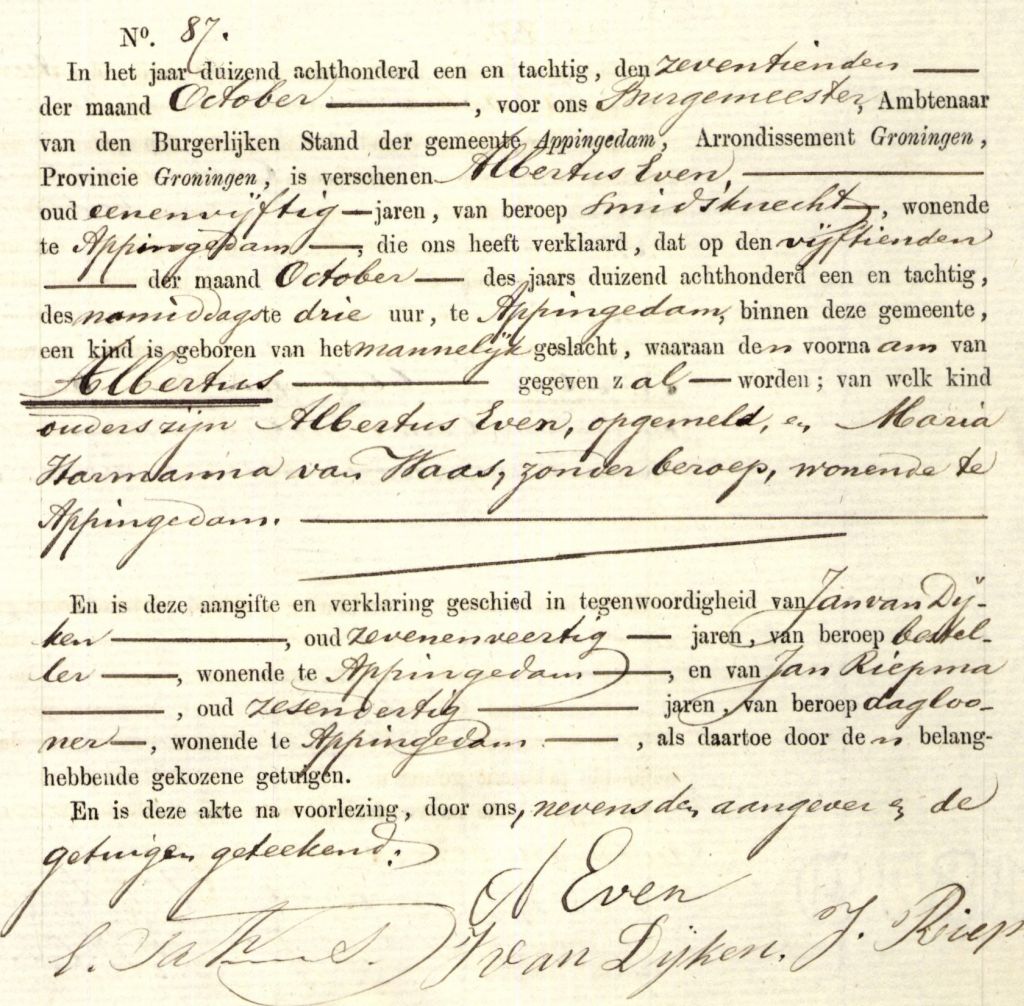 Nº. 87.
In het jaar duizend achthonderd een en tachtig, den zeventienden
der maand October, voor ons Burgemeester, Ambtenaar
van den Burgerlijken Stand der gemeente Appingedam, Arrondissement Groningen,
Provincie Groningen, is verschenen Albertus Even,
oud eenenvijftig jaren, van beroep Smidsknecht, wonende
te Appingedam, die ons heeft verklaard, dat op den vijftienden
der maand October des jaars duizend achthonderd een en tachtig,
des namiddagste drie uur, te Appingedam, binnen deze gemeente,
een kind is geboren van het mannelijk geslacht, waaraan den voornaam van
Albertus gegeven zal worden; van welk kind
ouders zijn Albertus Even, opgemeld, en Maria
Harmanna van Waas, zonder beroep, wonende te
Appingedam.
En is deze aangifte en verklaring geschied in tegenwoordigheid van Jan van Dij-
ken, oud zevenenveertig jaren, van beroep bestel-
ler, wonende te Appingedam, en van Jan Riepma
, oud zesendertig jaren, van beroep dagloo-
ner, wonende te Appingedam, als daartoe door den belang-
hebbende gekozene getuigen.
En is deze akte na voorlezing, door ons, nevens den aangever en de
getuigen geteekend.
A Even
J van Dijken. J. Riep